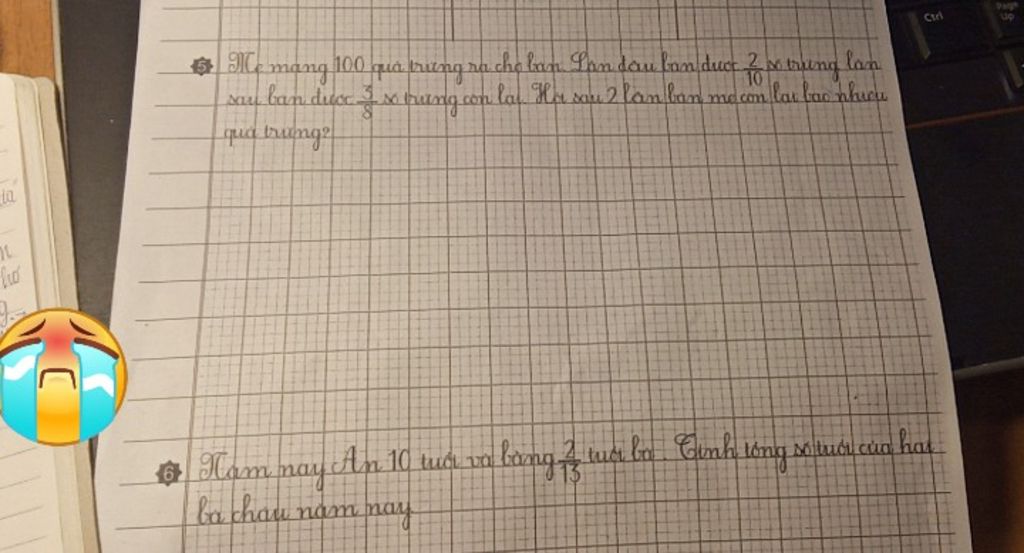 5 Mẹ mang 100 quả trứng ra chợ bán. Lần đầu bán được 2/10 số trứng, lần
sau bán được 3/8 số trứng còn lại. Hỏi sau 2 lần bán mẹ còn lại bao nhiêu
quả trứng?
6 Năm nay An 10 tuổi và bằng 2/13 tuổi bà. Tính tổng số tuổi của hai
bà cháu năm nay
Ctrl
Page
Up